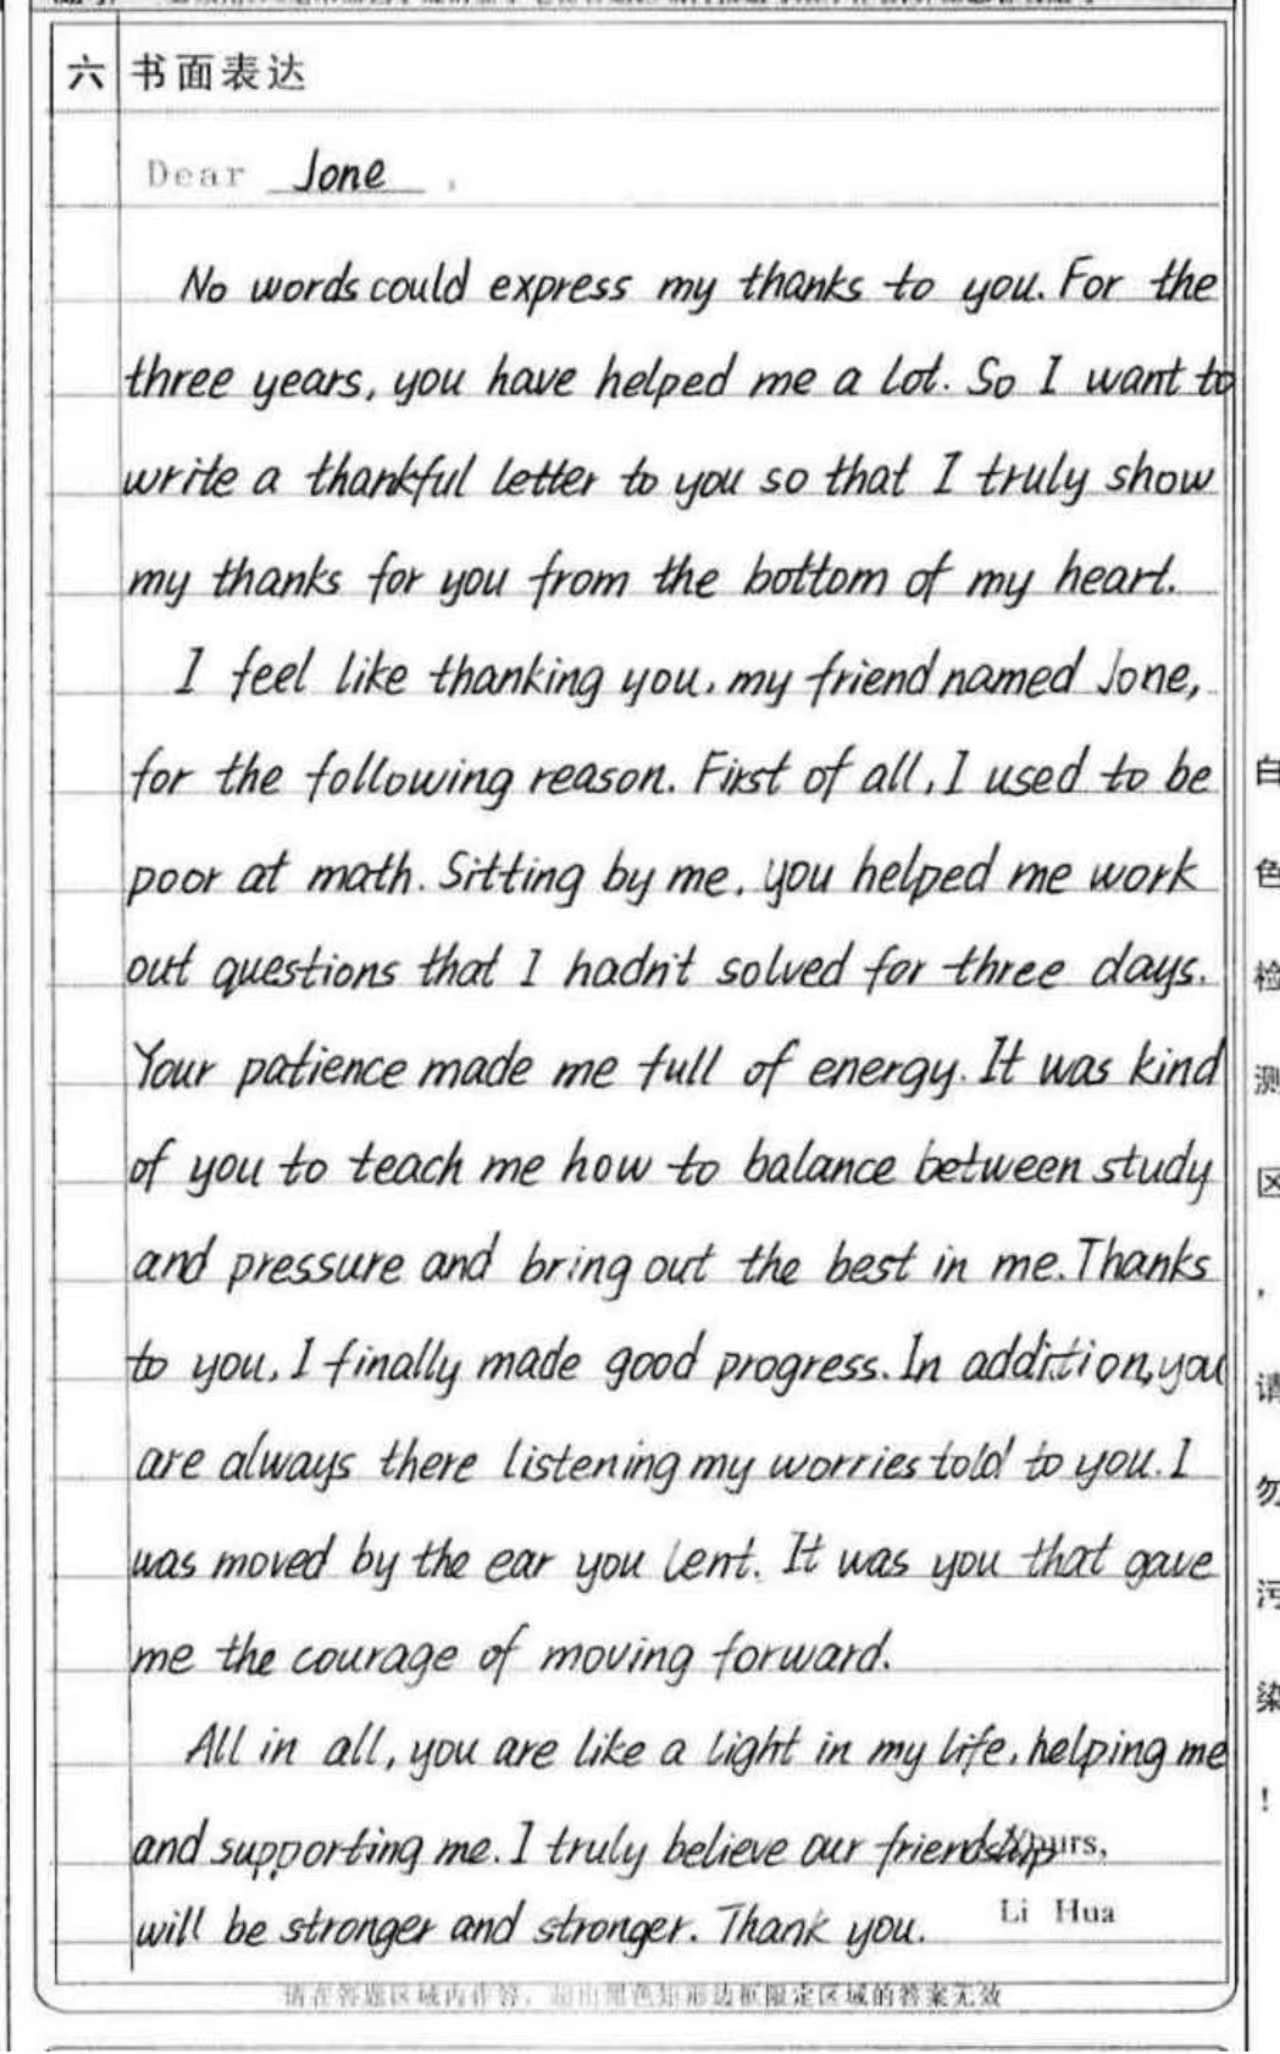 六 书面表达
Dear Jone ,
No words could express my thanks to you. For the
three years, you have helped me a lot. So I want to
write a thankful letter to you so that I truly show
my thanks for you from the bottom of my heart.
I feel like thanking you, my friend named Jone,
for the following reason. First of all, I used to be
poor at math. Sitting by me, you helped me work
out questions that I hadn't solved for three days.
Your patience made me full of energy. It was kind
of you to teach me how to balance between study
and pressure and bring out the best in me. Thanks
to you, I finally made good progress. In addition, you
are always there listening my worries told to you. I
was moved by the ear you lent. It was you that gave
me the courage of moving forward.
All in all, you are like a light in my life, helping me
and supporting me. I truly believe our friendship
Yours,
will be stronger and stronger. Thank you.
Li Hua
请在答题区域内作答，超出黑色矩形边框限定区域的答案无效
白
色
检
测
区
，
请
勿
污
染
！